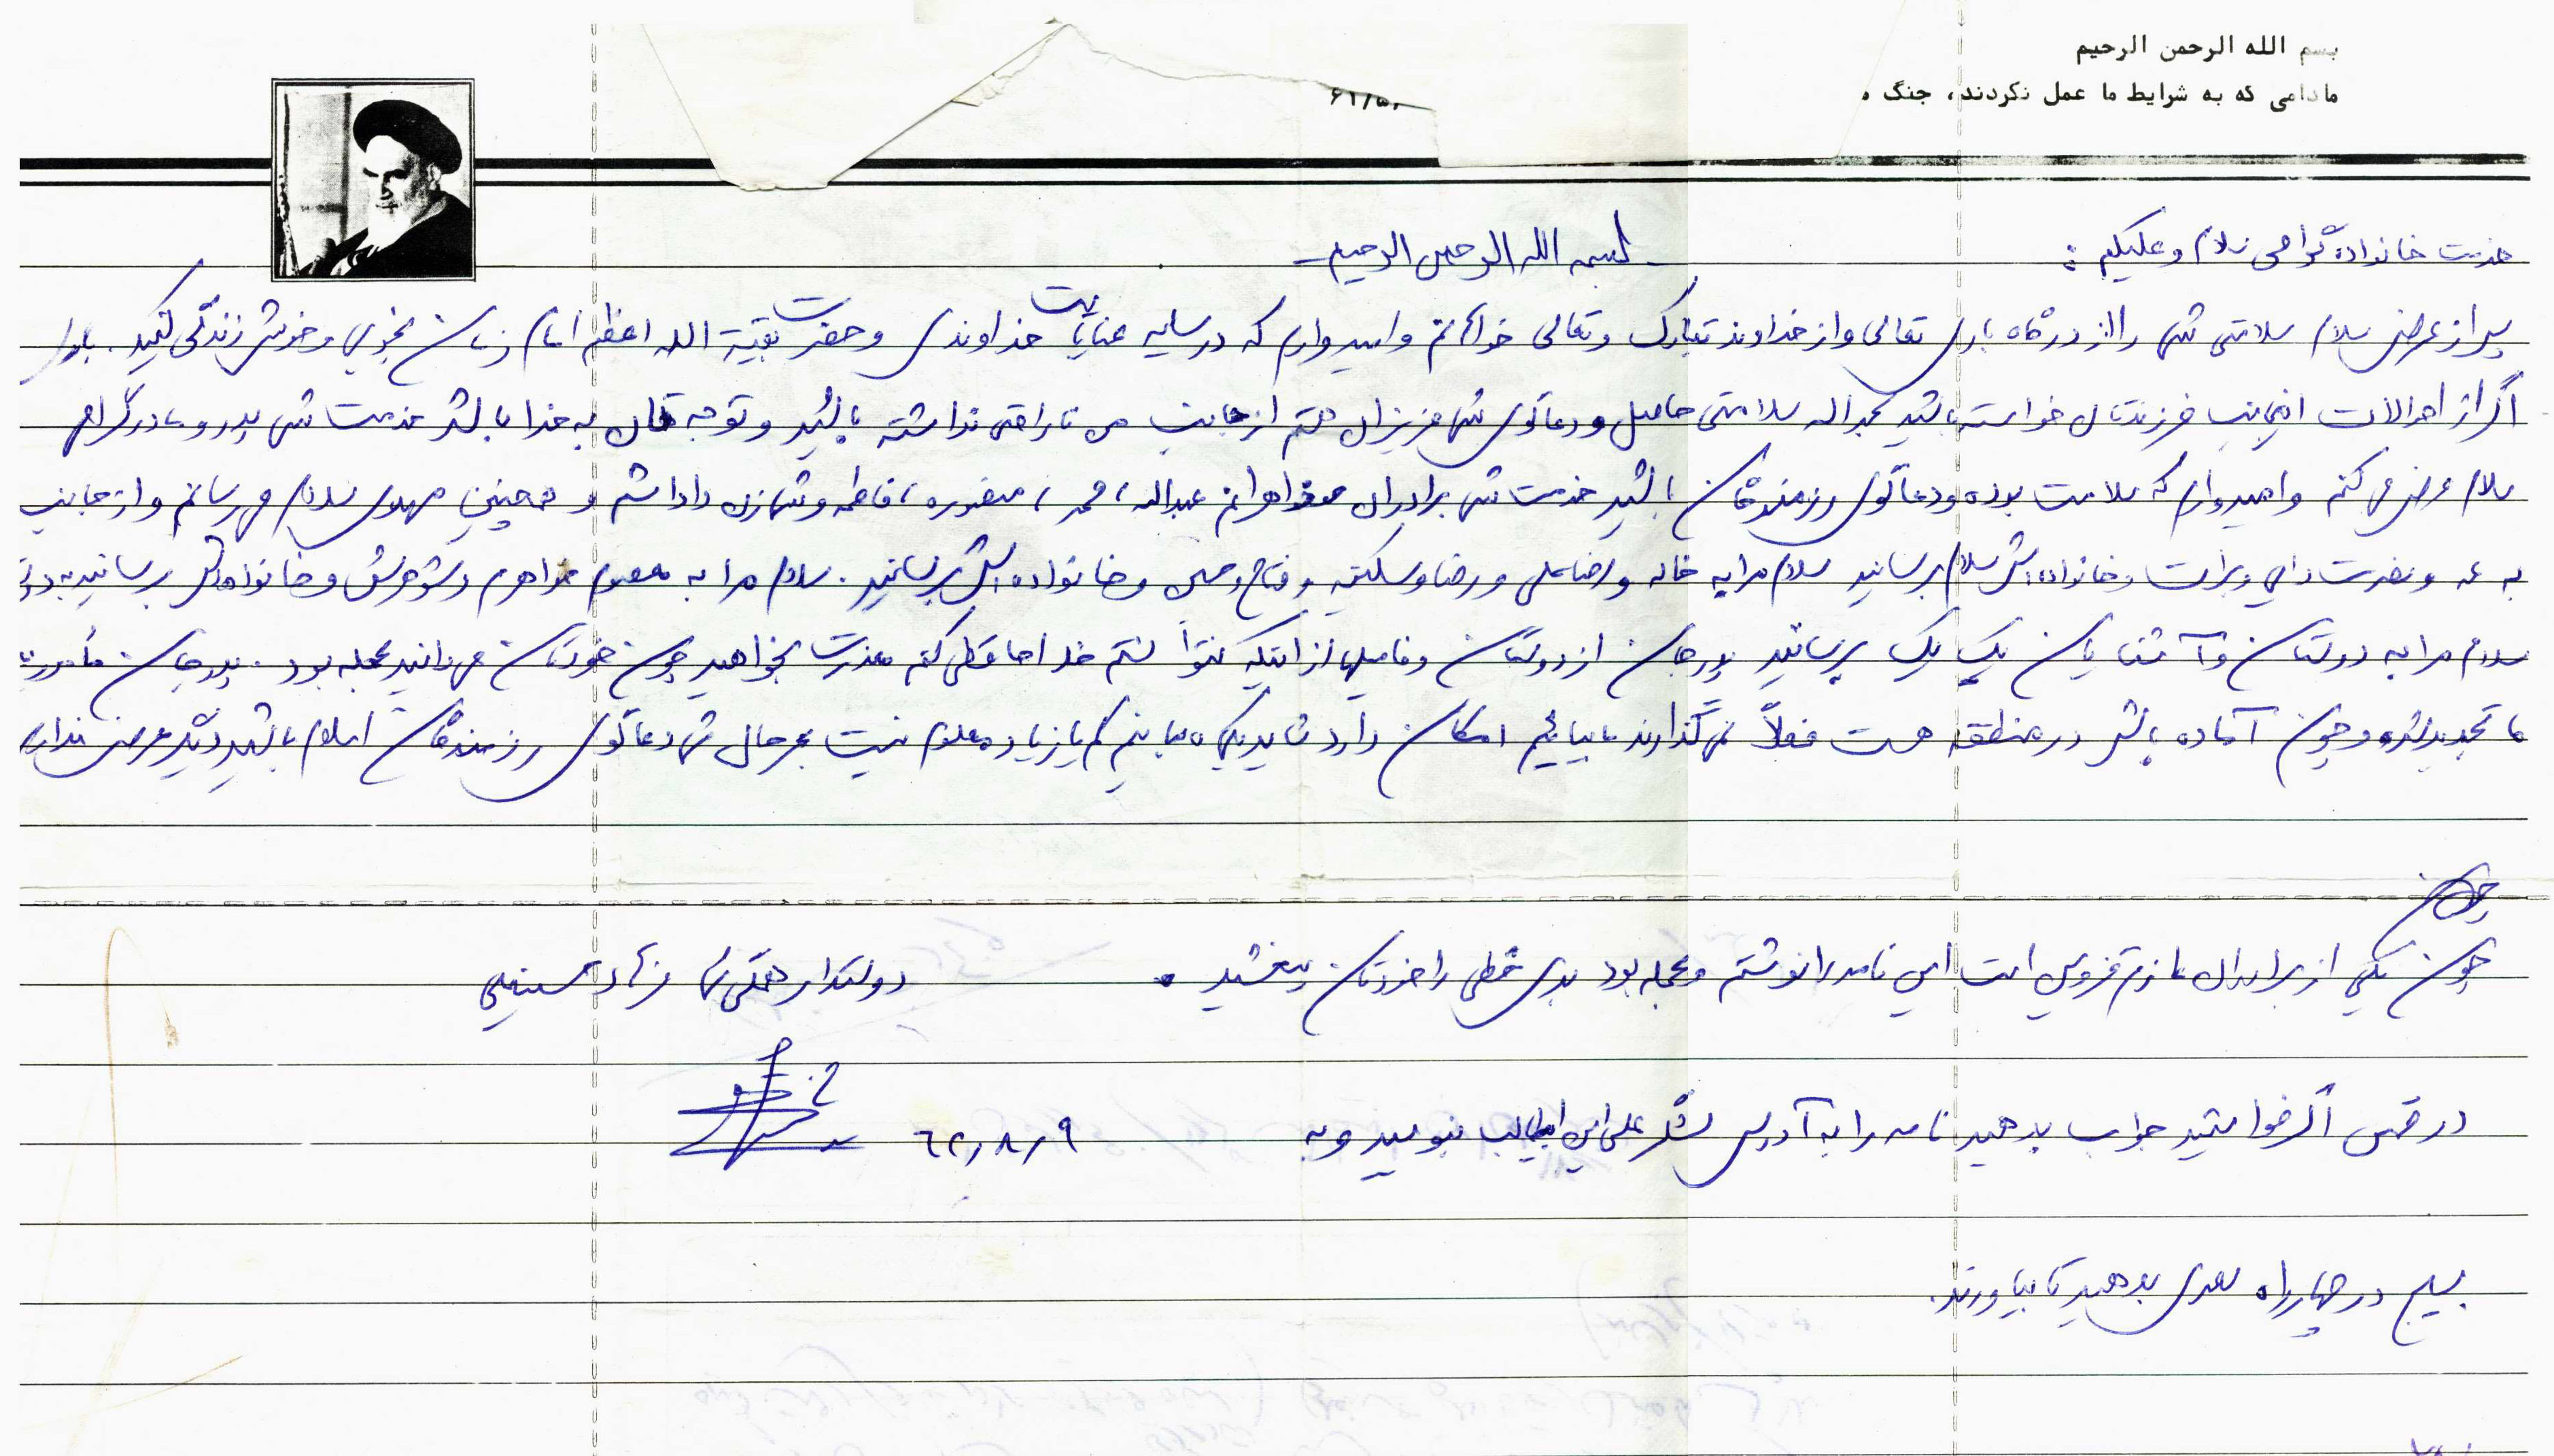 بسم الله الرحمن الرحیم
مادامی که به شرایط ما عمل نکردند، جنگ
۶۱/۵۰
بسم الله الرحمن الرحیم
خدمت خانواده گرامی سلام و علیکم :
پس از عرض سلام سلامتی شما را از درگاه باری تعالی و از خداوند تبارک و تعالی خواهانم و امیدوارم که در سایه عنایت خداوندی و حضرت بقیة الله اعظم امام زمان بخوبی و خوشی زندگی کنید. باری
اگر از احوالات اینجانب فرزندتان خواسته باشید بحمداله سلامتی حاصل و دعاگوی شما عزیزان هستم از جانب من ناراحتی نداشته باشید و توجه تان به خدا باشد خدمت شما پدر و مادر گرامی
سلام عرض می کنم و امیدوارم که سلامت بوده و دعاگوی رزمندگان باشید خدمت شما برادران و خواهرانم عبداله، محمد، منصوره، فاطمه و زن داداشم و همچنین مهدی سلام می رسانم و از جانب
به عمه و نصرت دایی و برات و خانواده اش سلام برسانید سلام مرا به خاله و رضاعلی و رضا و سکینه و فتاح و حسن و خانواده اش برسانید. سلام مرا به معصوم خواهرم و شوهرش و خانواده اش برسانید
سلام مرا به دوستان و آشنایان یک یک برسانید پدرجان از دوستان و فامیلها از اینکه نتوانستم خداحافظی کنم معذرت بخواهید چون خودتان می دانید عجله بود. پدرجان مأموریت
ما تجدید شده و چون آماده باش در منطقه هست فعلاً نمی گذارند ما بیائیم امکان دارد شاید یکی ماه بمانیم کم یا زیاد معلوم نیست بهرحال شما دعاگوی رزمندگان اسلام باشید دیگر عرضی ندارم
چون یکی از برادران عازم قزوین است این نامه را نوشتم و عجله بود بدی خطی را خودتان ببخشید
دوستدار همگی شما
در ضمن اگر خواستید جواب بدهید نامه را به آدرس لشگر علی ابن ابیطالب بنویسید و به
۶۲/۸/۹
بسیج در چهارراه سعدی بدهید تا بیاورند.